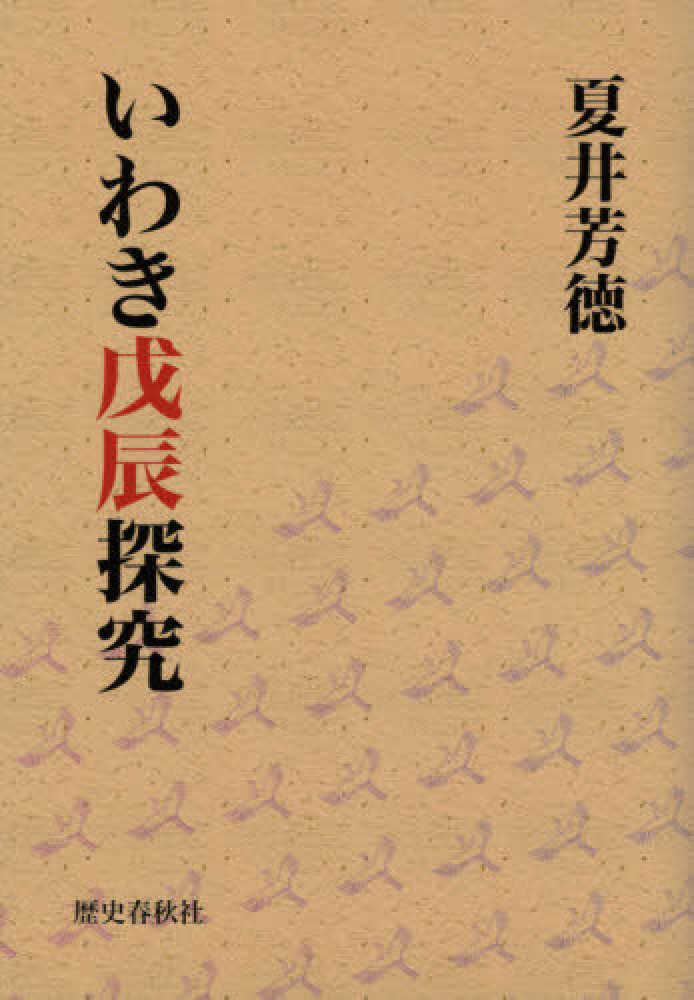 夏井芳徳
いわき戊辰探究
歴史春秋社